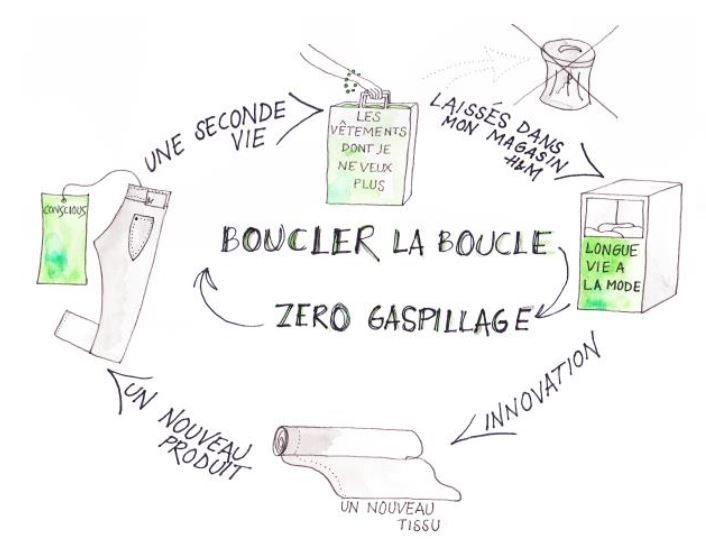 UNE SECONDE
VIE
LES
VÊTEMENTS
DONT JE
NE VEUX
PLUS
LAISSÉS DANS
MON MAGASIN
H&M
CONSCIOUS
BOUCLER LA BOUCLE
ZERO GASPILLAGE
LONGUE
VIE A
LA MODE
INNOVATION
UN NOUVEAU
PRODUIT
UN NOUVEAU
TISSU